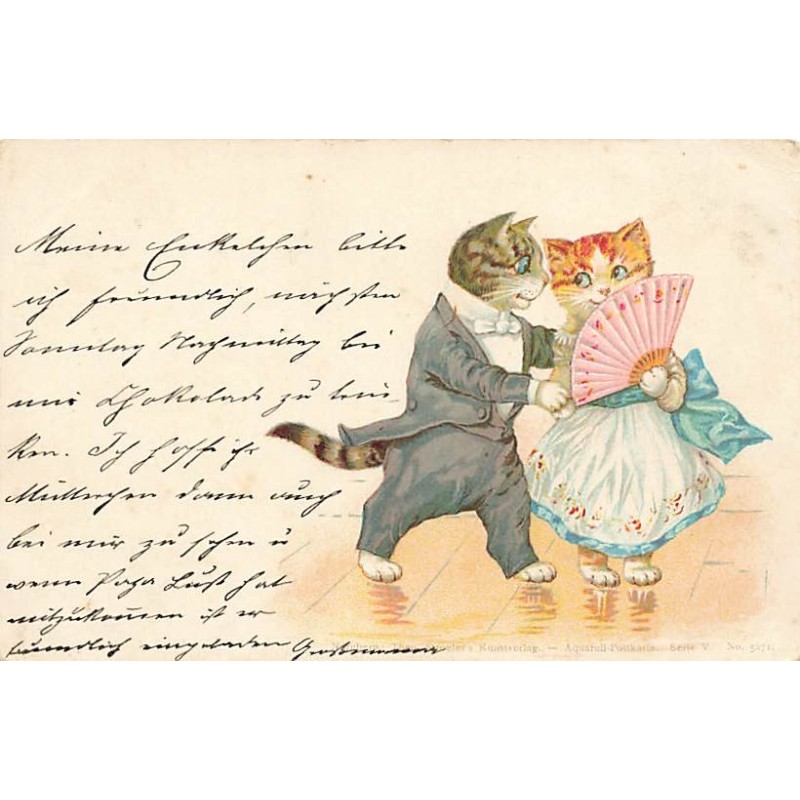 Meine Enkelchen bitte
ich freundlich, nächsten
Sonntag Nachmittag bei
mir Chokolade zu trin-
ken. Ich hoffe ihr
Mütterchen dann auch
bei mir zu sehen u
wenn Papa Lust hat
mitzukommen ist er
freundlich eingeladen Grossmama
Kunstverlag. — Aquarell-Postkarte. Serie V. No.